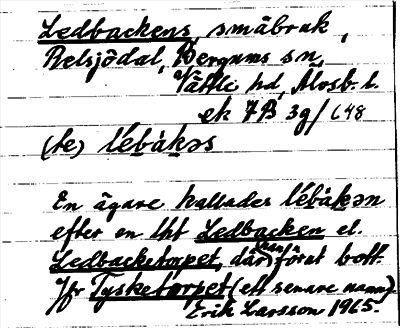 Ledbackens, småbruk,
Relsjödal, Bergums sn,
Vättle hd, Älvsb. l.
ek 7B 3g/L48
(te) lébàkəs
En ägare kallades lébàkən
efter en lht Ledbacken el.
Ledbacketorpet, där han förut bott.
Jfr Tysketorpet (ett senare namn).
Erik Larsson 1965.